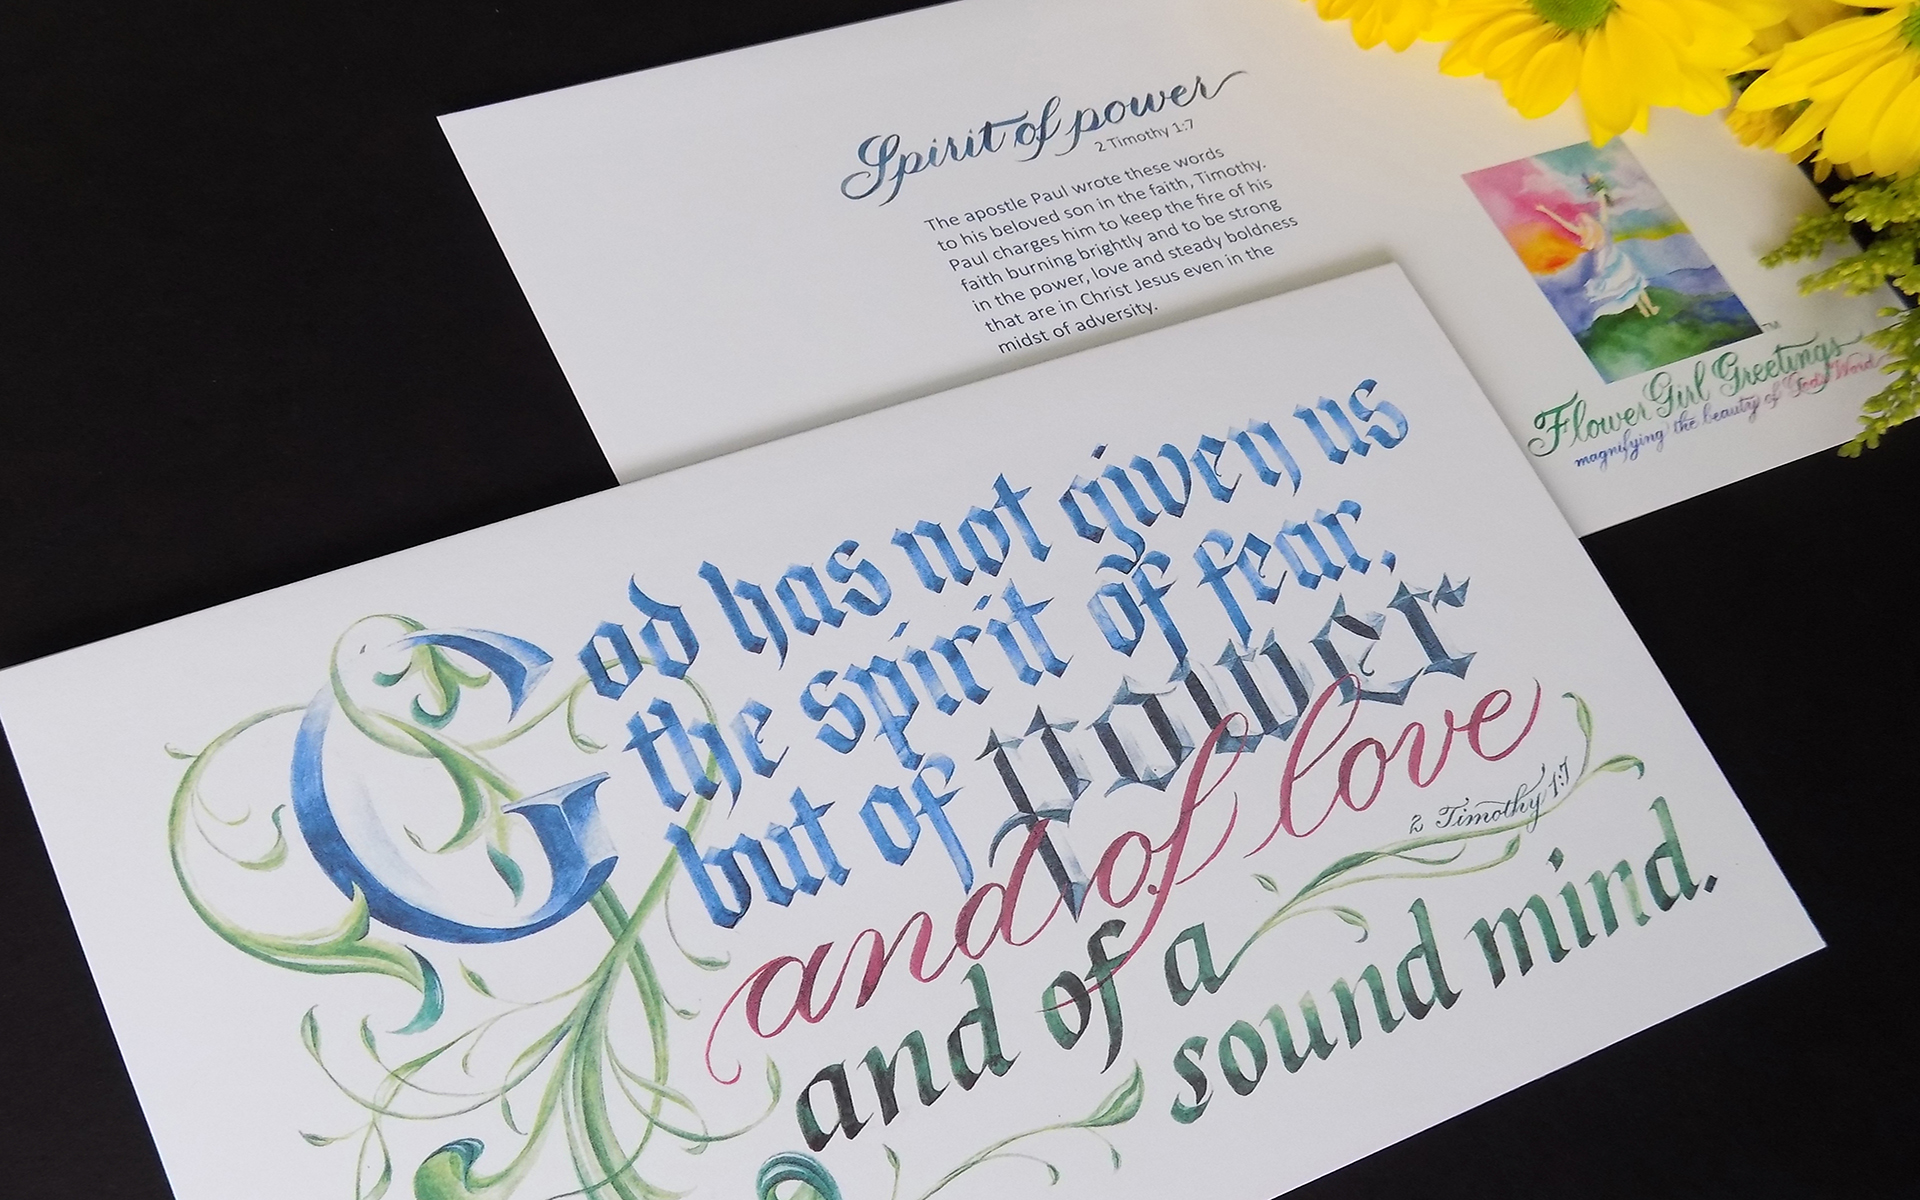 Spirit of power
2 Timothy 1:7
The apostle Paul wrote these words
to his beloved son in the faith, Timothy.
Paul charges him to keep the fire of his
faith burning brightly and to be strong
in the power, love and steady boldness
that are in Christ Jesus even in the
midst of adversity.
TM
Flower Girl Greetings
magnifying the beauty of God's Word
God has not given us
the spirit of fear,
but of power
and of love
2 Timothy 1:7
and of a
sound mind.